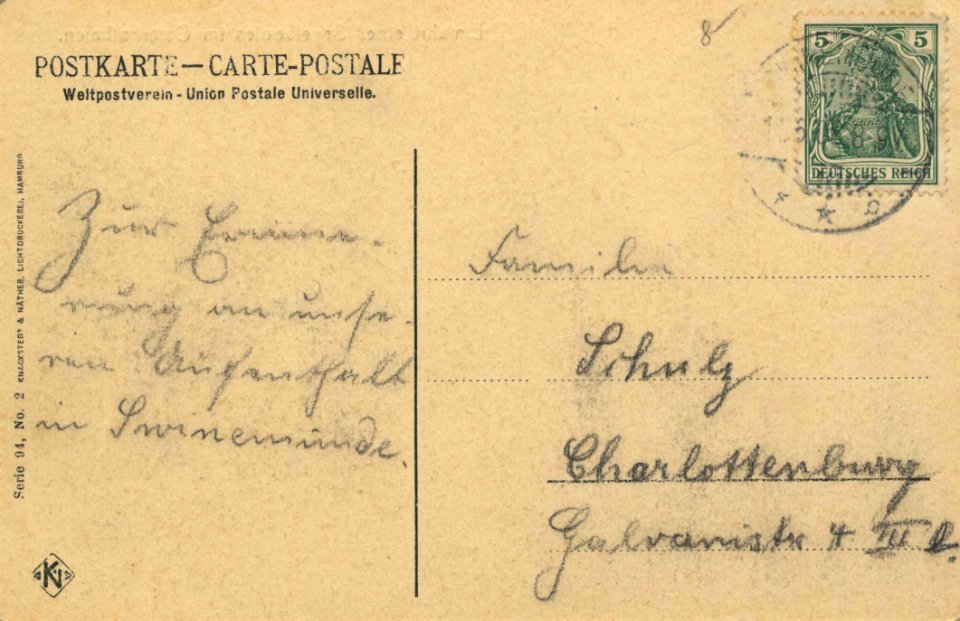 8
POSTKARTE — CARTE-POSTALE
Weltpostverein - Union Postale Universelle.
5 5
DEUTSCHES REICH
Zur Erinne-
rung an unse-
ren Aufenthalt
in Swinemünde.
Familie
Schulz
Charlottenburg
Galvanistr 4 III l.
Serie 94, No. 2 KNACKSTEDT & NÄTHER, LICHTDRUCKEREI, HAMBURG
KN